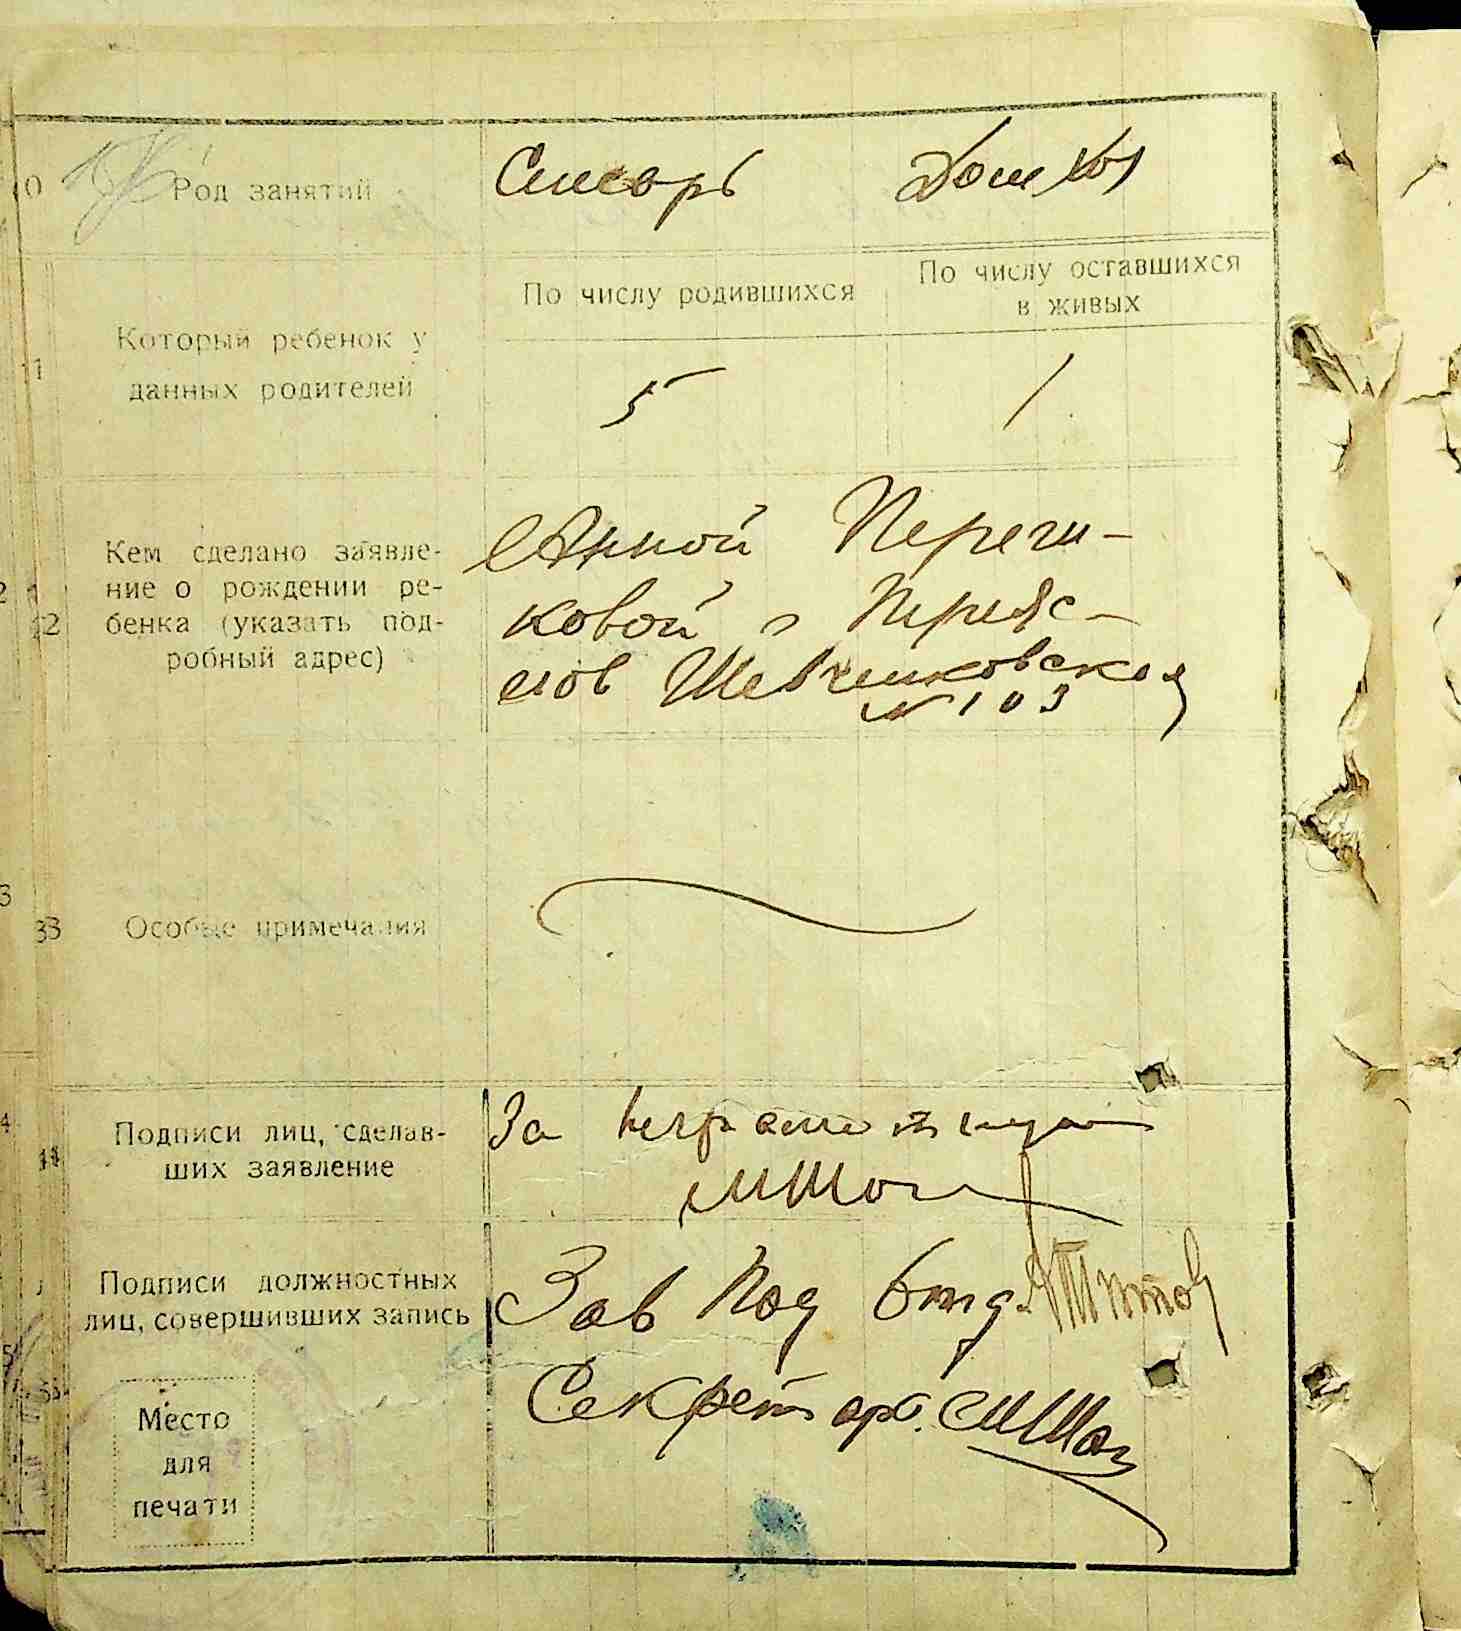 10 Род занятий Слесарь Дом хоз
По числу родившихся По числу оставшихся
в живых
11 Который ребенок у
данных родителей
5 1
Кем сделано заявле-
ние о рождении ре-
бенка (указать под-
робный адрес)
12
Анной Переги-
ковой г Переяс-
лов Шевченковская
№ 103
Особые примечания
Подписи лиц, сделав-
ших заявление
За неграмотную
Подписи должностных
лиц, совершивших запись
Зав Под Отд. Титов
Секретарь.
Место
для
печати